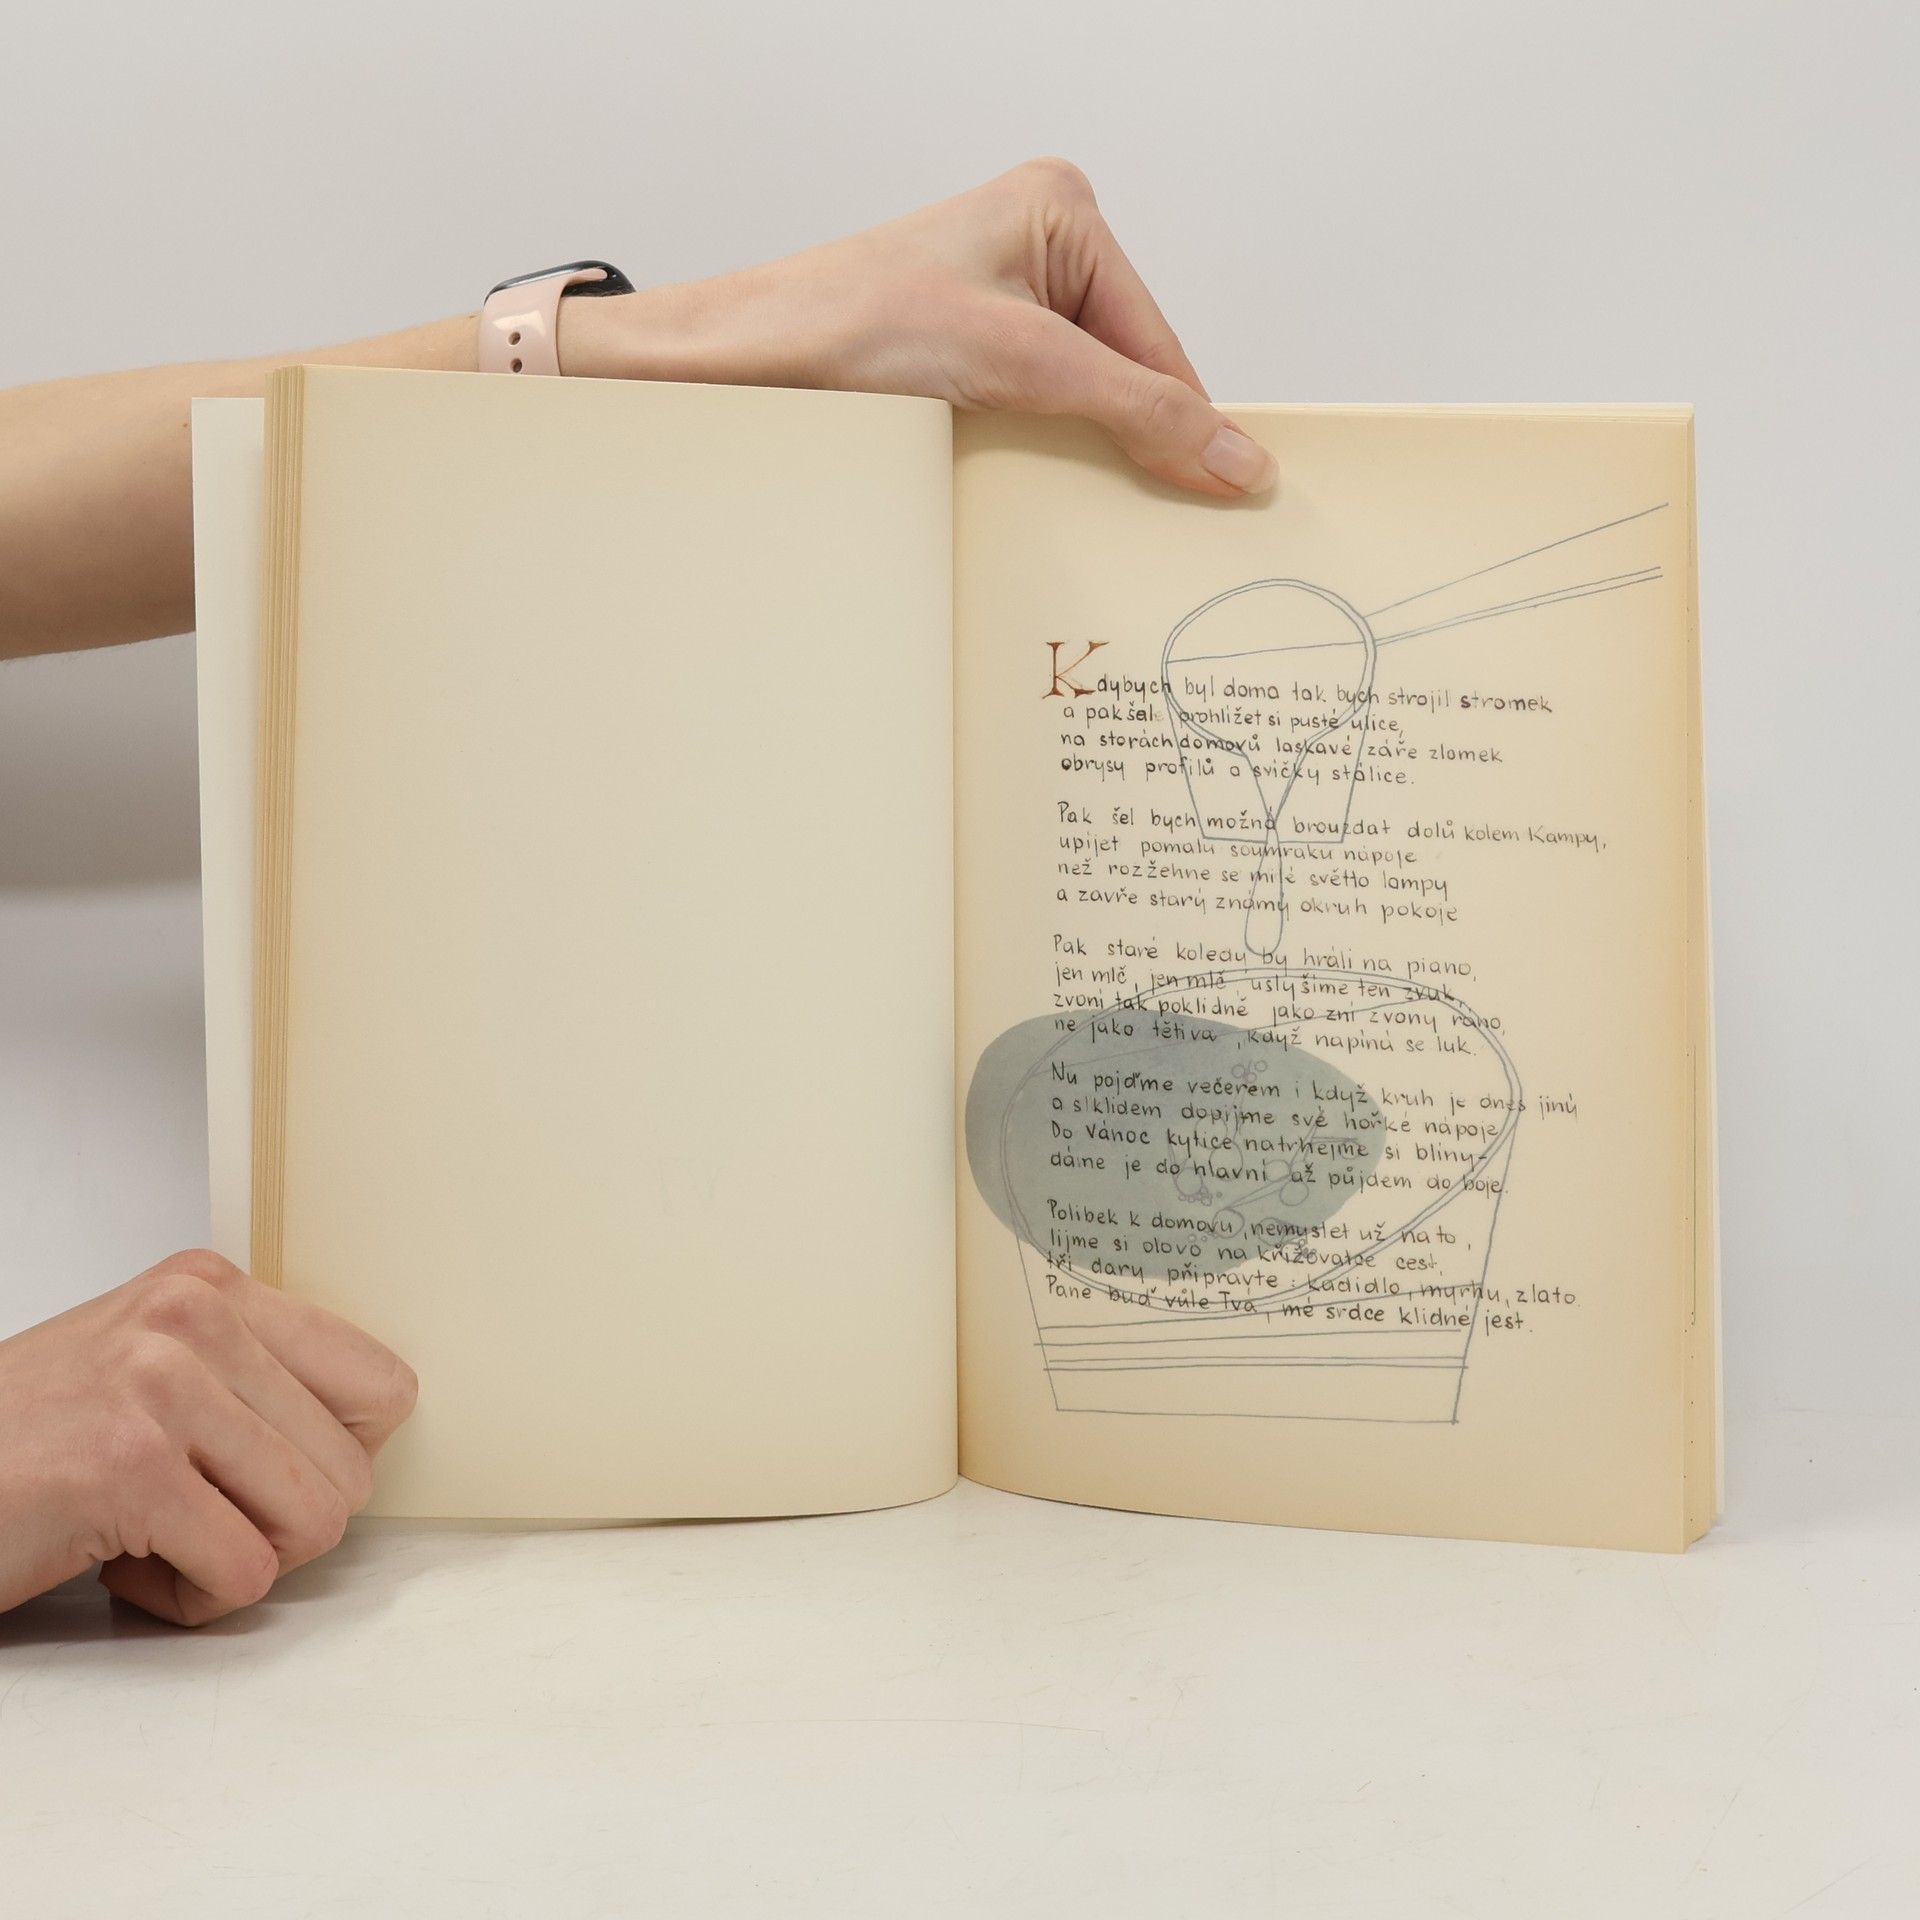 Kdybych byl doma tak bych strojil stromek
a pak šel prohlížet si pusté ulice,
na storách domovů laskavé záře zlomek
obrysy profilů a svíčky stálice.
Pak šel bych možná brouzdat dolů kolem Kampy,
upíjet pomalu soumraku nápoje
než rozžehne se milé světlo lampy
a zavře starý známý okruh pokoje
Pak staré koledy by hráli na piano,
jen mlč, jen mlč, uslyšíme ten zvuk,
zvoní tak poklidně jako zní zvony ráno,
ne jako tětiva, když napíná se luk.
Nu pojďme večerem i když kruh je dnes jiný
a s klidem dopijme své hořké nápoje
Do Vánoc kytice natrhejme si blíny-
dáme je do hlavní až půjdem do boje.
Polibek k domovu, nemyslet už na to,
lijme si olovo na křižovatce cest,
tři dary připravte: kadidlo, myrhu, zlato.
Pane buď vůle Tvá, mé srdce klidné jest.